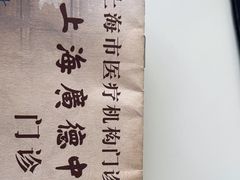 上海市医疗机构门诊
上海廣德中
门诊